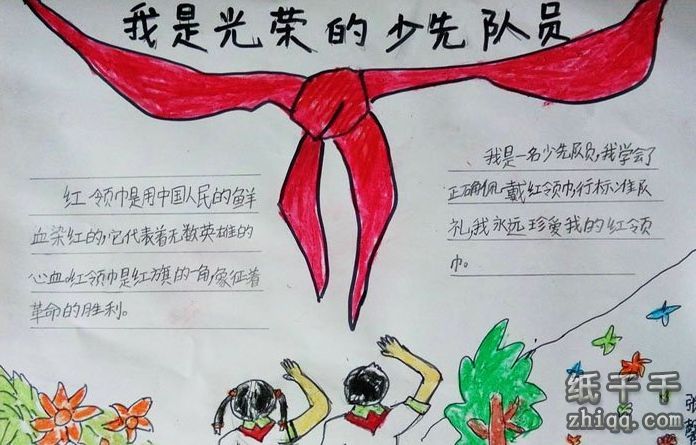 我是光荣的少先队员
红领巾是用中国人民的鲜
血染红的,它代表着无数英雄的
心血.红领巾是红旗的一角,象征着
革命的胜利。
我是一名少先队员,我学会了
正确佩戴红领巾,行标准队
礼,我永远珍爱我的红领
巾。
纸千千
zhiqq.com